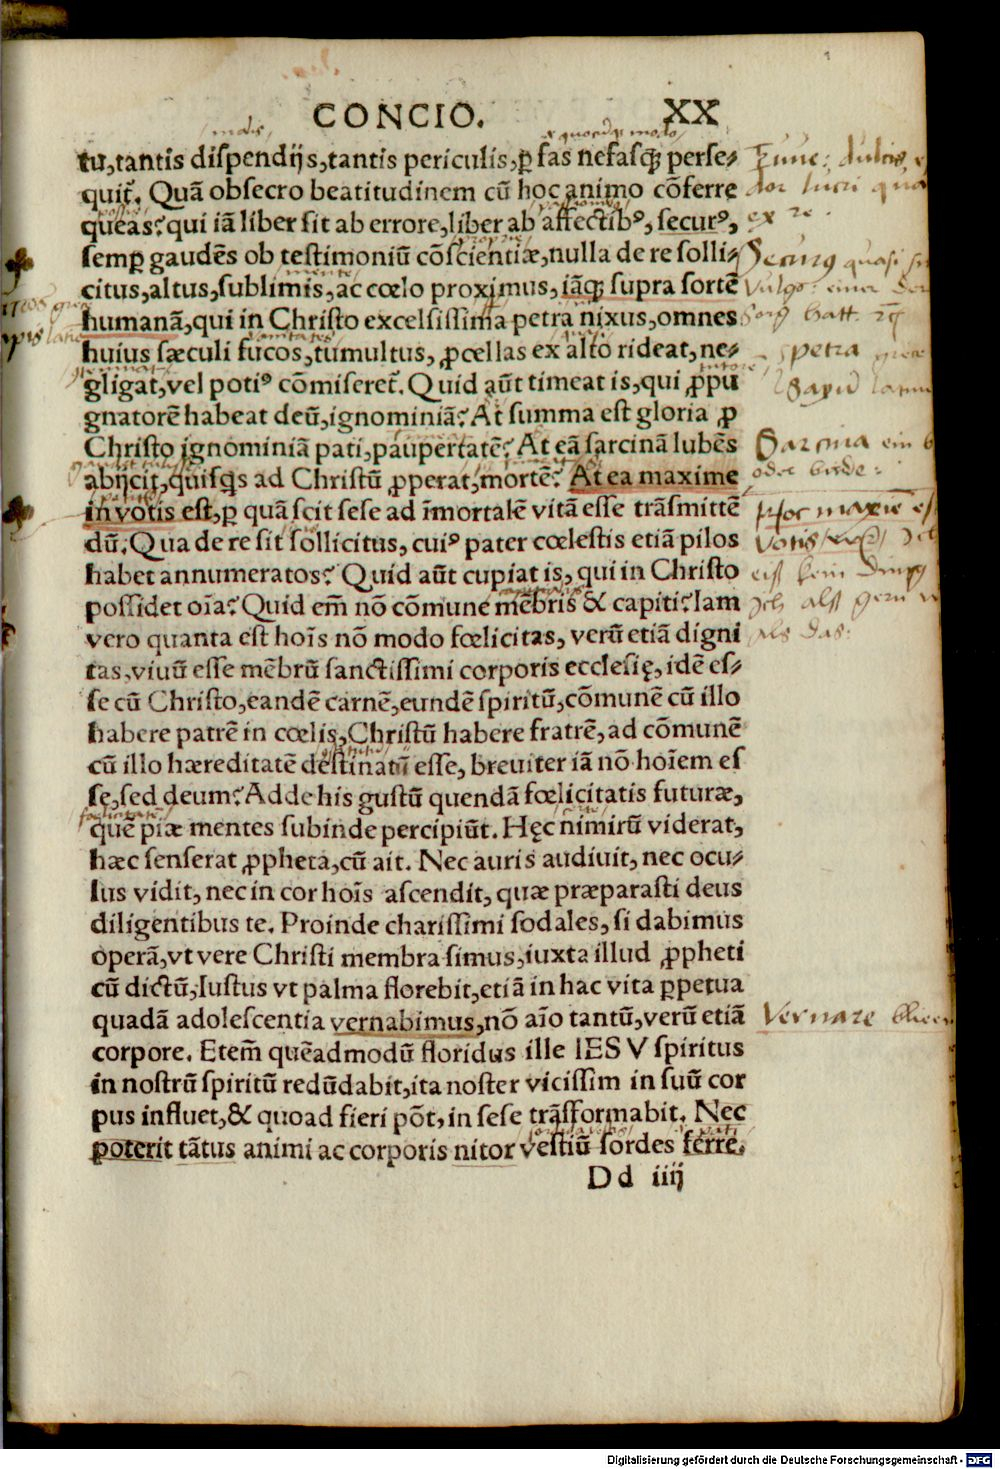 CONCIO. XX
tu, tantis dispendijs, tantis periculis, ꝑ fas nefasq; perse-
quit᷑. Quā obsecro beatitudinem cū hoc animo cōferre
queas? qui iā liber sit ab errore, liber ab affectibꝰ, securꝰ,
semꝑ gaudēs ob testimoniū cōscientiæ, nulla de re solli-
citus, altus, sublimis, ac cœlo proximus, iāq; supra sortē
humanā, qui in Christo excelsissima petra nixus, omnes
huius sæculi fucos, tumultus, ꝓcellas ex alto rideat, ne-
gligat, vel potiꝰ cōmiseret᷑. Quid aūt timeat is, qui ꝓpu
gnatorē habeat deū, ignominiā? At summa est gloria ꝓ
Christo ignominiā pati, paupertatē? At eā sarcinā lubēs
abijcit, quisqs ad Christū ꝓperat, mortē? At ea maxime
in votis est, ꝑ quā scit sese ad īmortalē vitā esse trāsmittē
dū. Qua de re sit sollicitus, cuiꝰ pater cœlestis etiā pilos
habet annumeratos? Quid aūt cupiat is, qui in Christo
possidet oīa? Quid em̄ nō cōmune mēbris & capiti? Iam
vero quanta est hoīs nō modo fœlicitas, verū etiā digni
tas, viuū esse mēbrū sanctissimi corporis ecclesię, idē es-
se cū Christo, eandē carnē, eundē spiritū, cōmunē cū illo
habere patrē in cœlis, Christū habere fratrē, ad cōmunē
cū illo hæreditatē destinatū esse, breuiter iā nō hoīem es
se, sed deum? Adde his gustū quendā fœlicitatis futuræ,
quē piæ mentes subinde percipiūt. Hęc nimirū viderat,
hæc senserat ꝓpheta, cū ait. Nec auris audiuit, nec ocu-
lus vidit, nec in cor hoīs ascendit, quæ præparasti deus
diligentibus te. Proinde charissimi sodales, si dabimus
operā, vt vere Christi membra simus, iuxta illud ꝓpheti
cū dictū, Iustus vt palma florebit, etiā in hac vita ꝑpetua
quadā adolescentia vernabimus, nō aīo tantū, verū etiā
corpore. Etem̄ quēadmodū floridus ille IESV spiritus
in nostrū spiritū redūdabit, ita noster vicissim in suū cor
pus influet, & quoad fieri pōt, in sese trāsformabit. Nec
ꝑoterit tātus animi ac corporis nitor vestiū sordes ferre.
Dd iiij
dulcis
lucri
ex re.
Securus quasi
petra
Sarcina ein
Hoc maxime
votis
als das:
Vernare
Digitalisierung gefördert durch die Deutsche Forschungsgemeinschaft - DFG